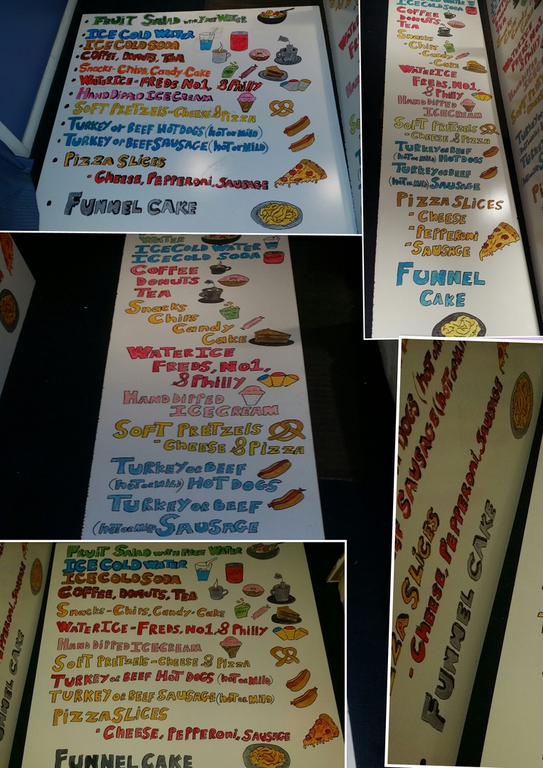 FRUIT SALAD with Free WATER
ICE COLD WATER
ICE COLD SODA
COFFEE, DONUTS, TEA
Snacks - Chips, Candy, Cake
WATER ICE - FREDS NO1, & Philly
HAND DIPPED ICE CREAM
SOFT PRETZELS - CHEESE & PIZZA
TURKEY or BEEF HOT DOGS (HOT or MILD)
TURKEY or BEEF SAUSAGE (HOT or MILD)
PIZZA SLICES
- CHEESE, PEPPERONI, SAUSAGE
FUNNEL CAKE
ICE COLD SODA
COFFEE
DONUTS
TEA
Snacks
Chips
Candy
Cake
WATER ICE
FREDS, NO1,
& Philly
HAND DIPPED
ICE CREAM
SOFT PRETZELS
- CHEESE & PIZZA
TURKEY or BEEF
(HOT or MILD) HOT DOGS
TURKEY or BEEF
(HOT or MILD) SAUSAGE
PIZZA SLICES
- CHEESE
- PEPPERONI
- SAUSAGE
FUNNEL
CAKE
WATER
ICE COLD WATER
ICE COLD SODA
COFFEE
DONUTS
TEA
Snacks
Chips
Candy
Cake
WATER ICE
FREDS, NO1,
& Philly
HAND DIPPED
ICE CREAM
SOFT PRETZELS
- CHEESE & PIZZA
TURKEY or BEEF
(HOT or MILD) HOT DOGS
TURKEY or BEEF
(HOT or MILD) SAUSAGE
DOGS (HOT or
SAUSAGE (HOT or MILD
SLICES
- CHEESE, PEPPERONI, SAUSAGE
FUNNEL CAKE
FRUIT SALAD WITH FREE WATER
ICE COLD WATER
ICE COLD SODA
COFFEE, DONUTS, TEA
Snacks - Chips, Candy, Cake
WATER ICE - FREDS, NO1, & Philly
HAND DIPPED ICE CREAM
SOFT PRETZELS - CHEESE & PIZZA
TURKEY or BEEF HOT DOGS (HOT or MILD)
TURKEY or BEEF SAUSAGE (HOT or MILD)
PIZZA SLICES
- CHEESE, PEPPERONI, SAUSAGE
FUNNEL CAKE
PEPPERONI, SAUSAGE
CAKE